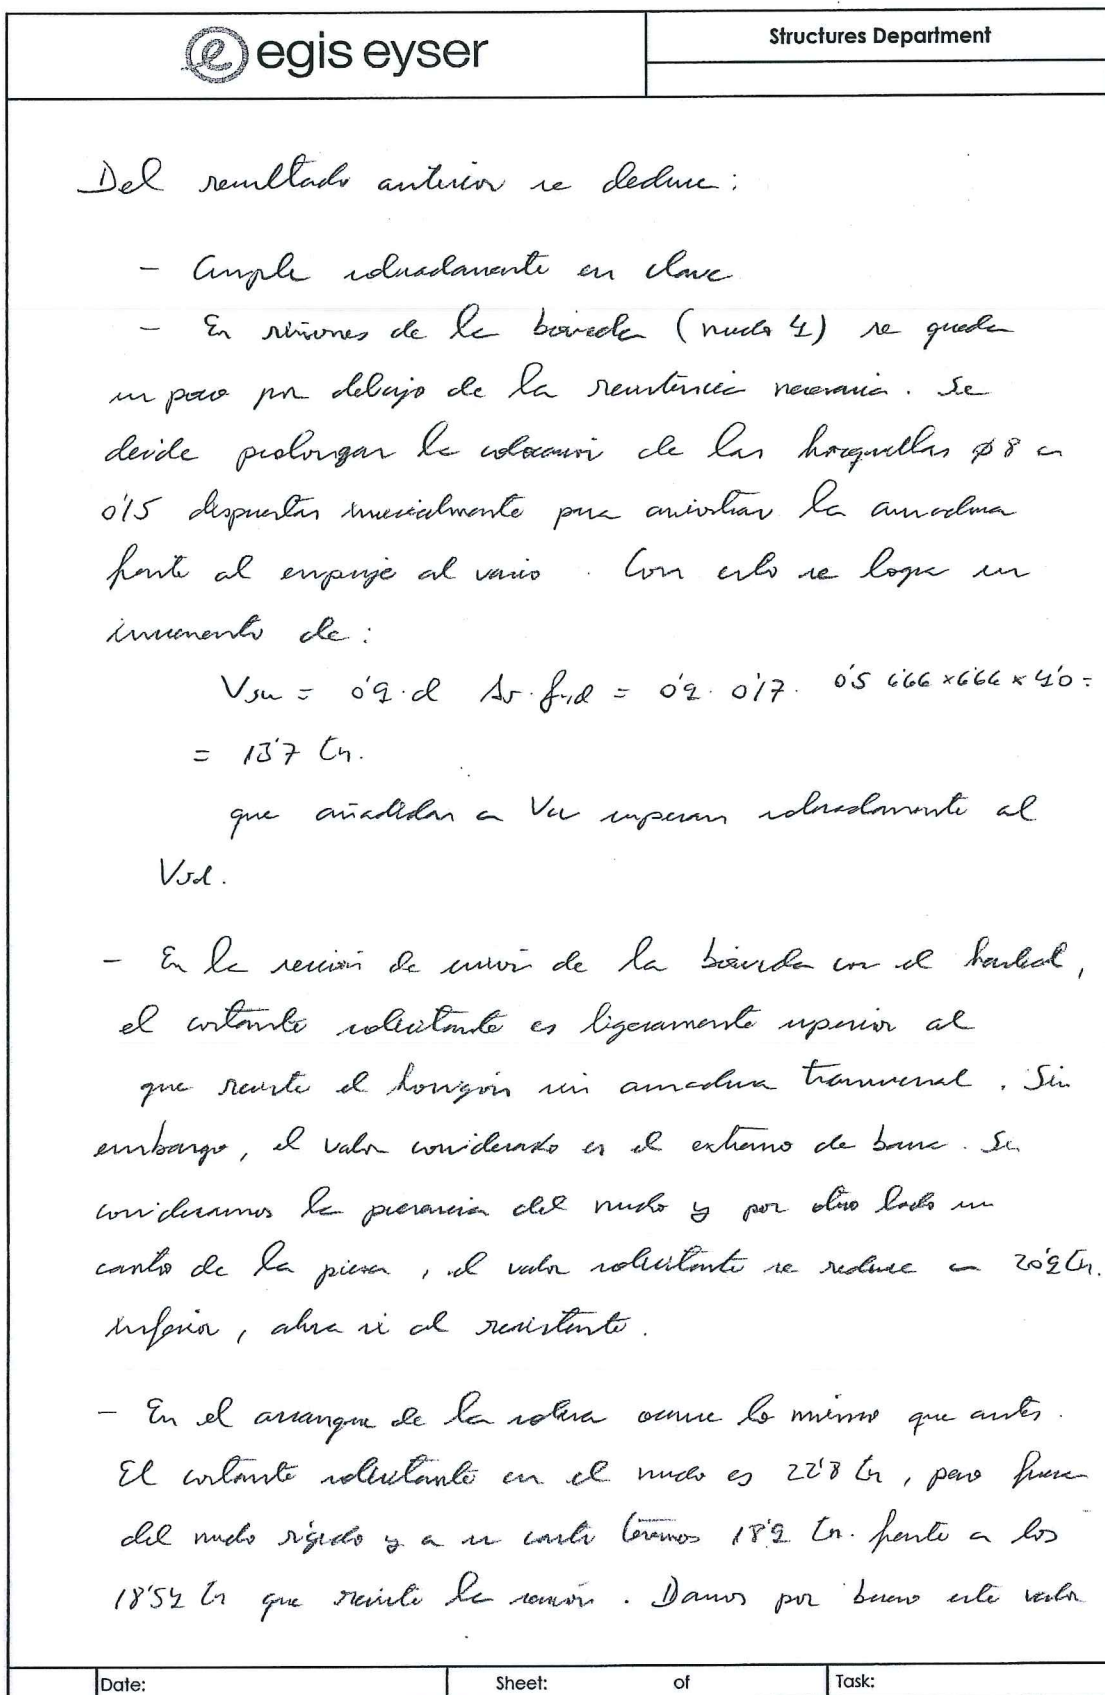 egis eyser
Structures Department
Del resultado anterior se deduce:
- Cumple sobradamente en clave
- En riñones de la bóveda (nudo 4) se queda
un poco por debajo de la resistencia necesaria. Se
decide prolongar la colocación de las horquillas ø 8 a
0'15 dispuestas inicialmente para arriostrar la armadura
frente al empuje al vacío. Con esto se logra un
incremento de:
Vsu = 0'9·d As·fyd = 0'9· 0'17· 0'5 666×666×4'0=
= 13'7 Tn.
que añadidas a Vcu superan sobradamente al
Vsd.
- En la sección de unión de la bóveda con el hastial,
el cortante solicitante es ligeramente superior al
que resiste el hormigón sin armadura transversal. Sin
embargo, el valor considerado es el extremo de barra. Si
consideramos la presencia del nudo y por otro lado un
canto de la pieza, el valor solicitante se reduce a 20'9 Tn.
inferior, ahora sí al resistente.
- En el arranque de la solera ocurre lo mismo que antes.
El cortante solicitante en el nudo es 22'8 Tn, pero fuera
del nudo rígido y a un canto tenemos 18'9 Tn. frente a los
18'54 Tn que resiste la sección. Damos por bueno este valor
Date:
Sheet: of
Task: